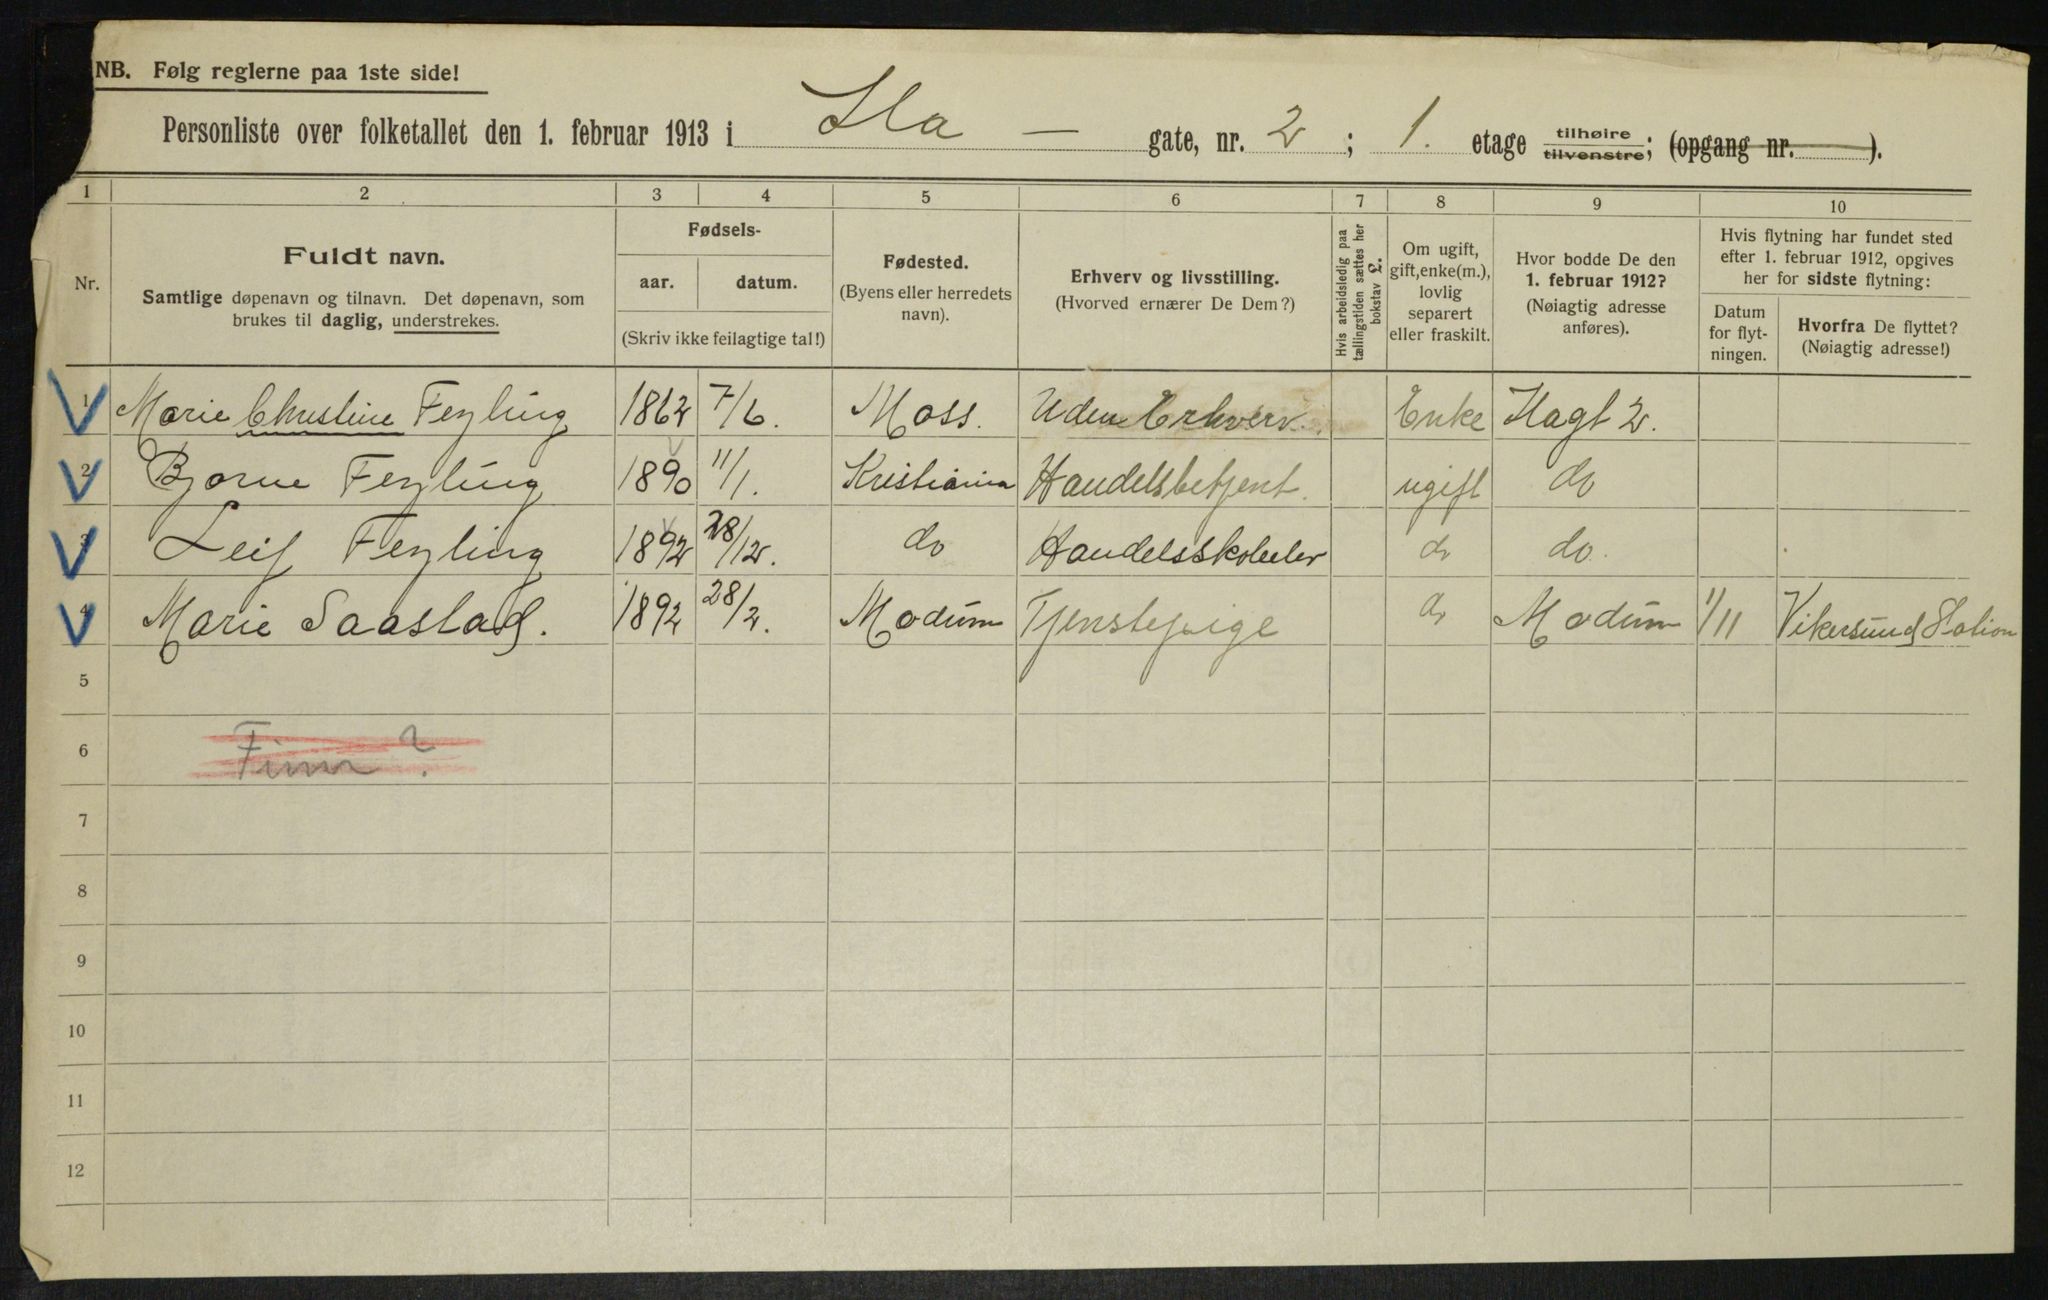 NB. Følg reglerne paa 1ste side!
Personliste over folketallet den 1. februar 1913 i Ila — gate, nr. 2; 1. etage tilhøire tilvenstre; (opgang nr. ).
1 2 3 4 5 6 7 8 9 10
Nr.
Fuldt navn.
Samtlige døpenavn og tilnavn. Det døpenavn, som
brukes til daglig, understrekes.
Fødsels-
aar. datum.
(Skriv ikke feilagtige tal!)
Fødested.
(Byens eller herredets
navn).
Erhverv og livsstilling.
(Hvorved ernærer De Dem?)
Hvis arbeidsledig paa
tællingstiden sættes her
bokstav L.
Om ugift,
gift, enke(m.),
lovlig
separert
eller fraskilt.
Hvor bodde De den
1. februar 1912?
(Nøiagtig adresse
anføres).
Hvis flytning har fundet sted
efter 1. februar 1912, opgives
her for sidste flytning:
Datum
for flyt-
ningen.
Hvorfra De flyttet?
(Nøiagtig adresse!)
1 Marie Christine Feyling 1862 7/6. Moss. Uden Erhverv. Enke Ilagt 2.
2 Bjarne Feyling 1890 11/1. Kristiania Handelsbetjent. ugift do
3 Leif Feyling 1892 28/12. do Handelsskoleelev do do.
4 Marie Saastad. 1892 28/2. Modum Tjenstepige do Modum 1/11 Vikersund Station
5
6 Finn ?
7
8
9
10
11
12